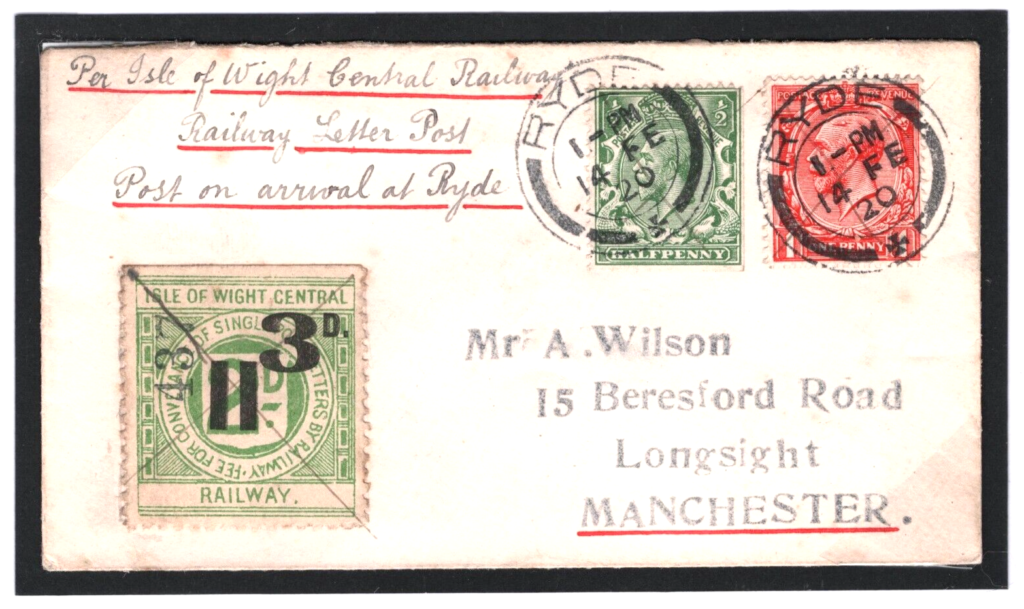 Per Isle of Wight Central Railway
Railway Letter Post
Post on arrival at Ryde
RYDE
1 - PM
14 FE
20
3
½
½
HALFPENNY
RYDE
1 - PM
14 FE
20
REVENUE
ONE PENNY
ISLE OF WIGHT CENTRAL
437
3D.
FEE FOR CONVEYANCE OF SINGLE LETTERS BY RAILWAY
2D
RAILWAY.
Mr A. Wilson
15 Beresford Road
Longsight
MANCHESTER.